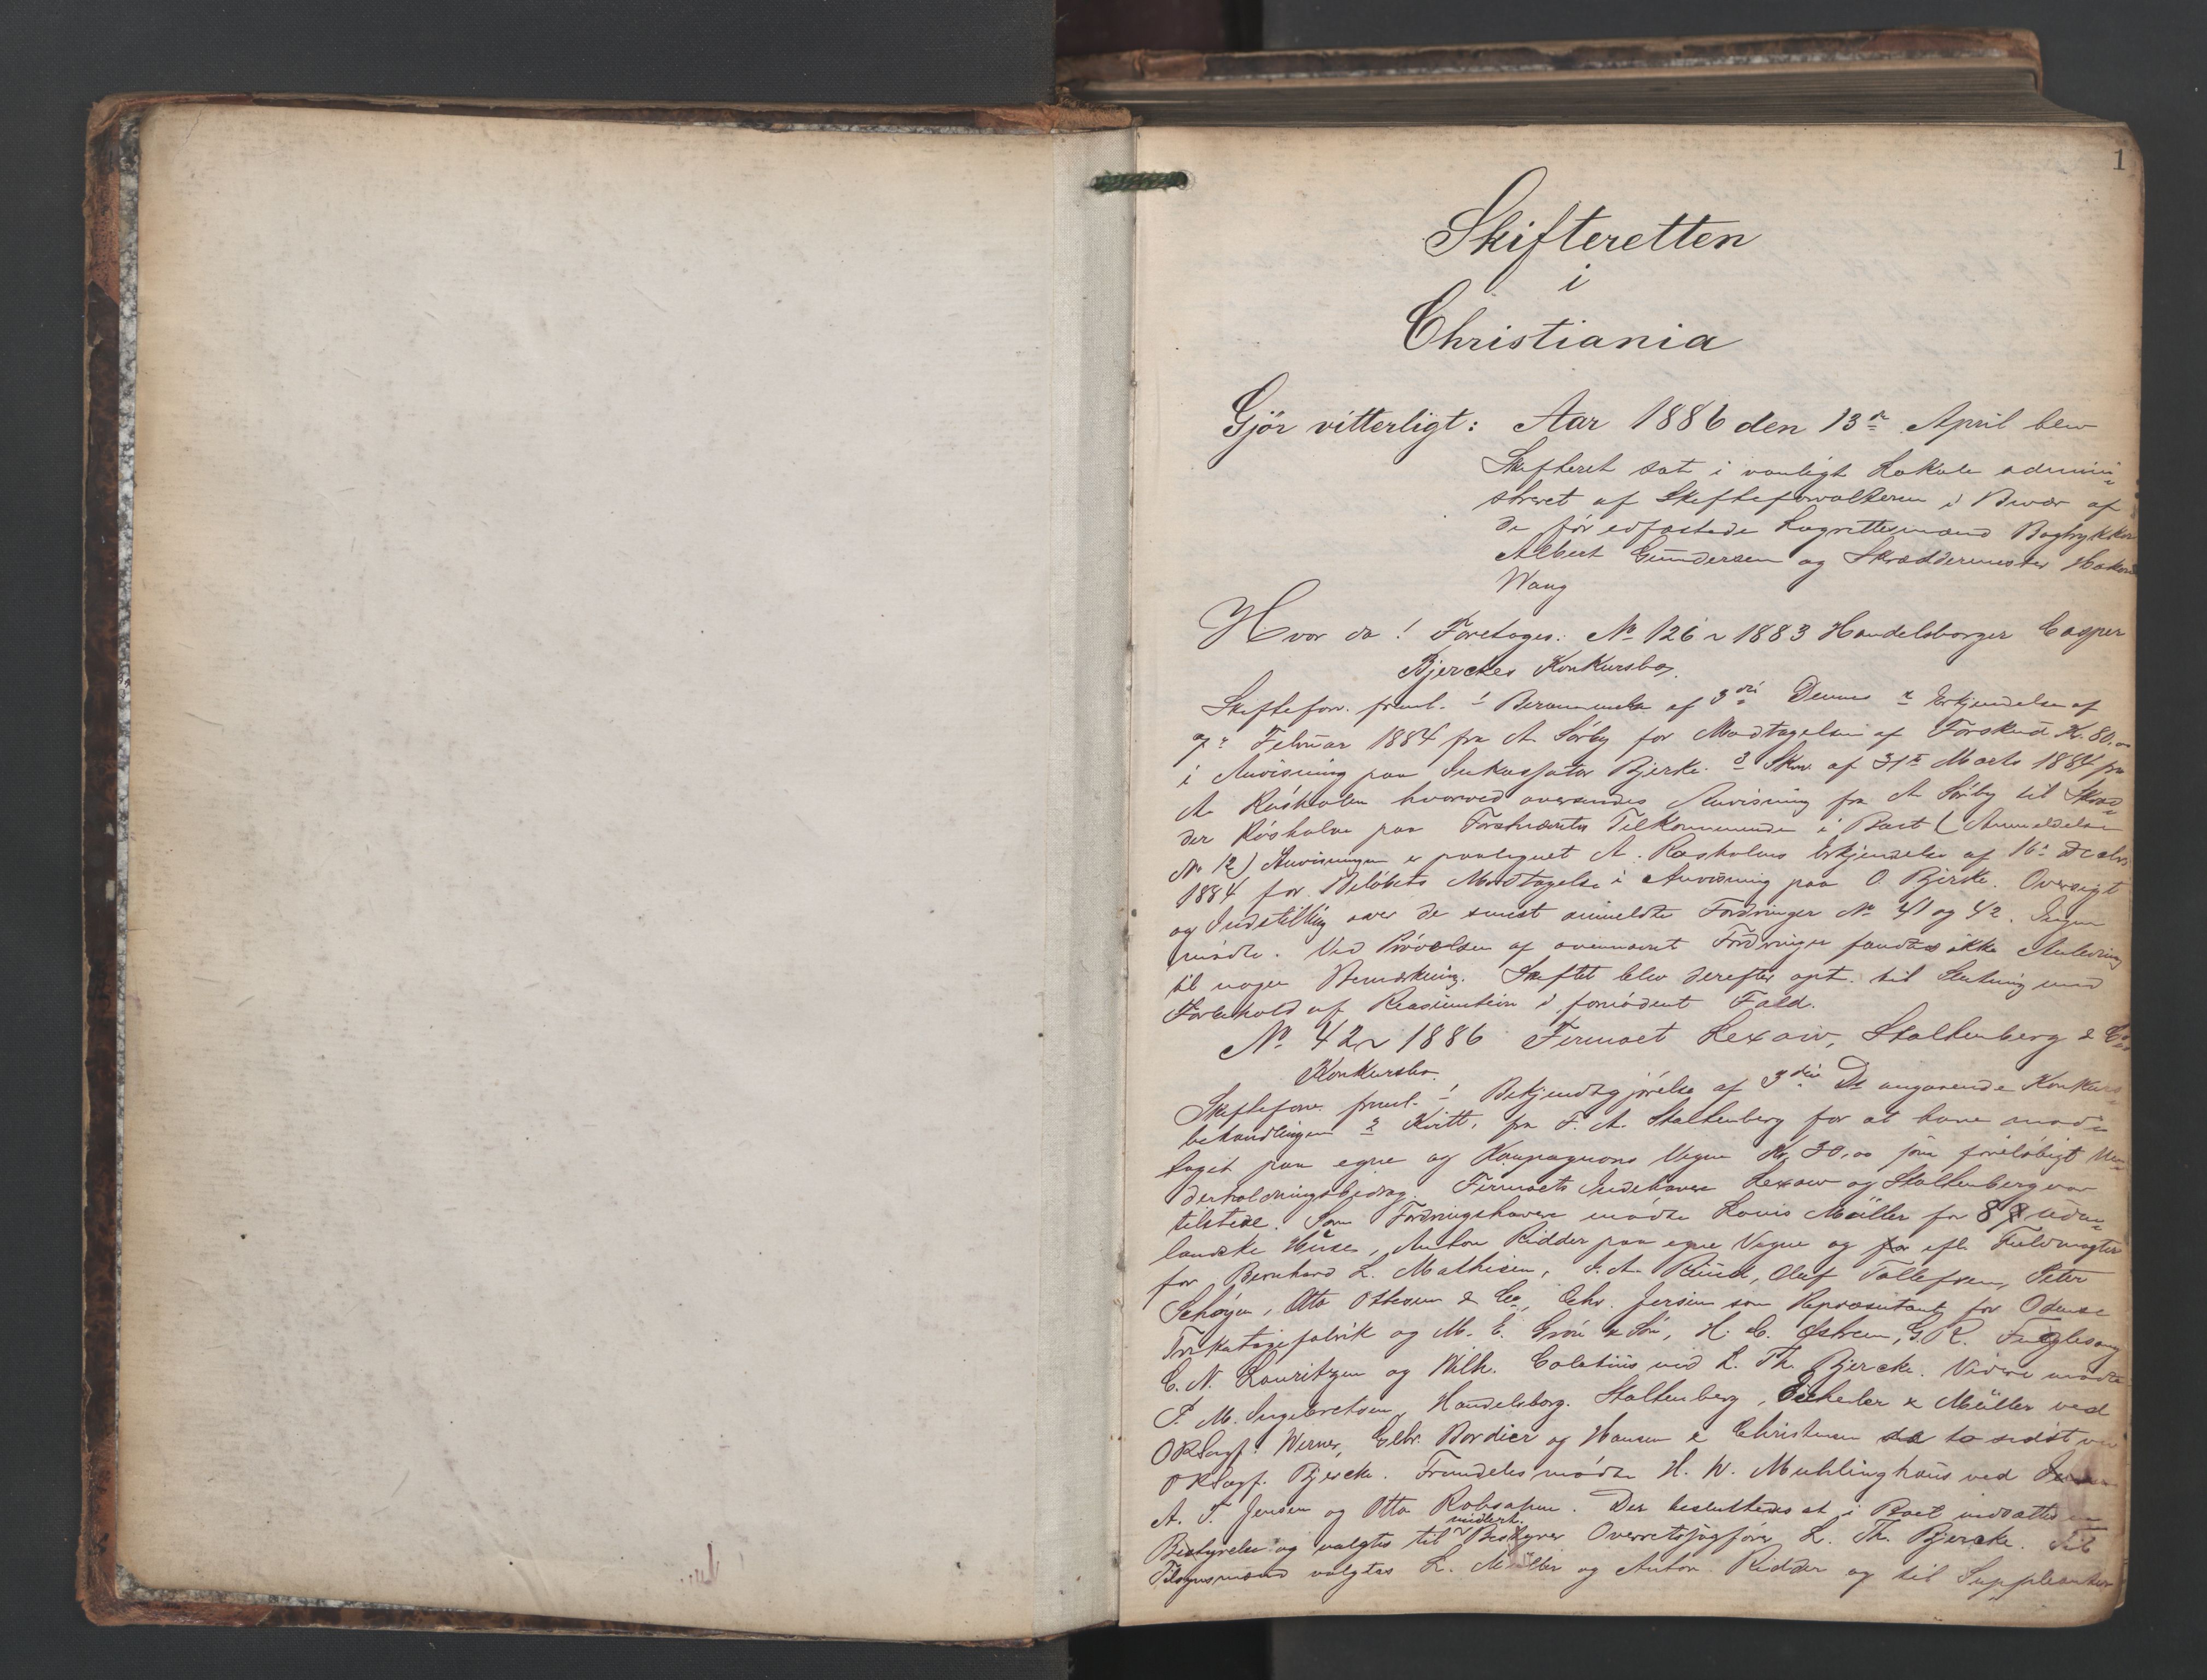 1
Skifteretten
i
Christiania
Gjör vitterligt: Aar 1886 den 13de April blev
Skifteret sat i vanligt Lokale admini=
streret af Skifteforvalteren i Nærvær af
de før edfæstede Lagrettesmænd Bogtrykker
Albert Gundersen og Skræddermester Haakon
Wang
Hvor da! Foretoges: No 126 ~ 1883 Handelsborger Casper
Bjerckes Konkursbo,
Skifteforv. freml. 1 Berammelse af 3die Dennes 2 Erkjendelse af
Februar 1884 fra A. Sörby for Modtagelsen af Forskud K. 80.00
i Anvisning paa Inkassator Bjerke. 3 Skr. af 31te Marts 1884 fra
A. Röskolen hvorved oversendes Anvisning fra A. Sörby til Skræd=
der paa Førstnævntes Tilkommende i Boet (Anmeldelse
No 12) Anvisningen er paategnet A. Erkjendelse af 16
1884 for Beløbets Modtagelse i Anvisning paa O. Bjerke. Oversigt
og Indstilling over de senest anmeldte Fordringer No 41 og 42. Ingen
mödte. Ved Prövelsen af ovennævnt Fordringer fandtes ikke Anledning
til nogen Bemærkning. Skiftet blev derefter opt. til Slutning med
Forbehold af Reasumtion i fornödent Fald.
No 42 ~ 1886 Firmaet Lexow, Stoltenberg & Co
Konkursbo.
Skifteforv. freml. 1 Bekjendtgjörelse af 3die Ds angaaende Konkurs=
behandlingen 2 Kvitt. fra F. A. Stoltenberg for at have mod=
taget paa egne og Kompagnons Vegne Kr. 30,00 som foreløbigt Un=
derholdningsbidrag. Firmaets Indehavere Lexow og Stoltenberg var
tilstede. Som Fordringshavere mödte Louis Müller for 8 uden=
landske Huse, Anton Ridder paa egne Vegne og efter Fuldmagter
for Bernhard L. Mathisen, J. A. Olaf Tollefsen, Peter
Schöyen, Otto Ottesen & Co, Chr. Jersin som Repræsentant for Odense
Trikotagefabrik og M. E. Grön & Sön, H. C. Östrem, G. R. Fuglesang
C. N. Lauritzen og Wilh. Coletius ved L. Th. Bjercke. Videre mödte
P. M. Ingebretsen, Handelsborg. Stoltenberg, & Müller ved
O.R.Sagf. Werner, Gebr. Bordier og Hansen & Christensen de to sidst ved
O.R.Sagf. Bjercke. Fremdeles mödte H. W. Muhlinghaus ved
A. T. Jensen og Otto Robsahm. Der besluttedes at i Boet indsattes en
Bestyrelse og valgtes til midlert. Bestyrer Overretssagförer L. Th. Bjercke. Til
Tilsynsmænd valgtes L. Müller og Anton Ridder og til Suppleanter